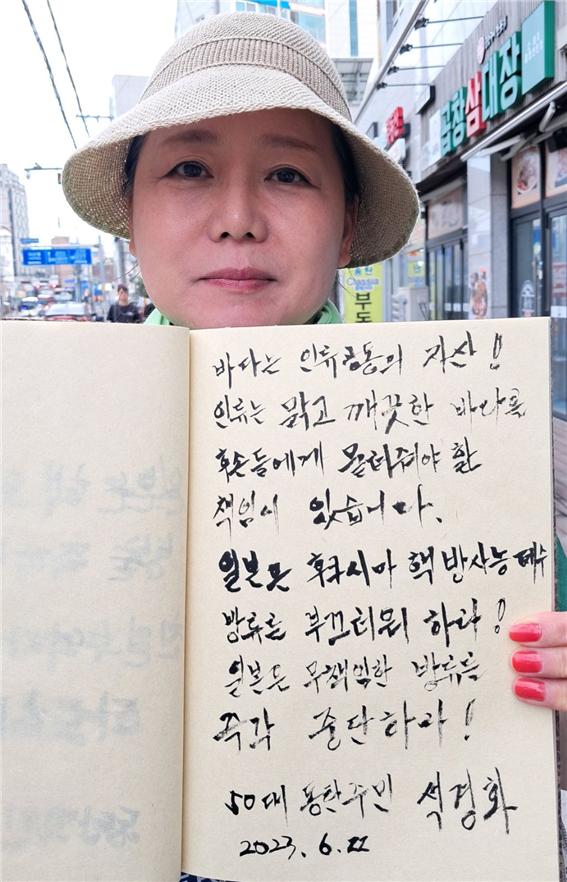 곱창삼대장
부동
바다는 인류공동의 자산!!
인류는 맑고 깨끗한 바다를
후손들에게 물려줘야 할
책임이 있습니다.
일본은 후쿠시마 핵 방사능 폐수
방류를 부끄러워 하라!
일본은 무책임한 방류를
즉각 중단하라!
50대 동탄주민 석경화
2023. 6. 22